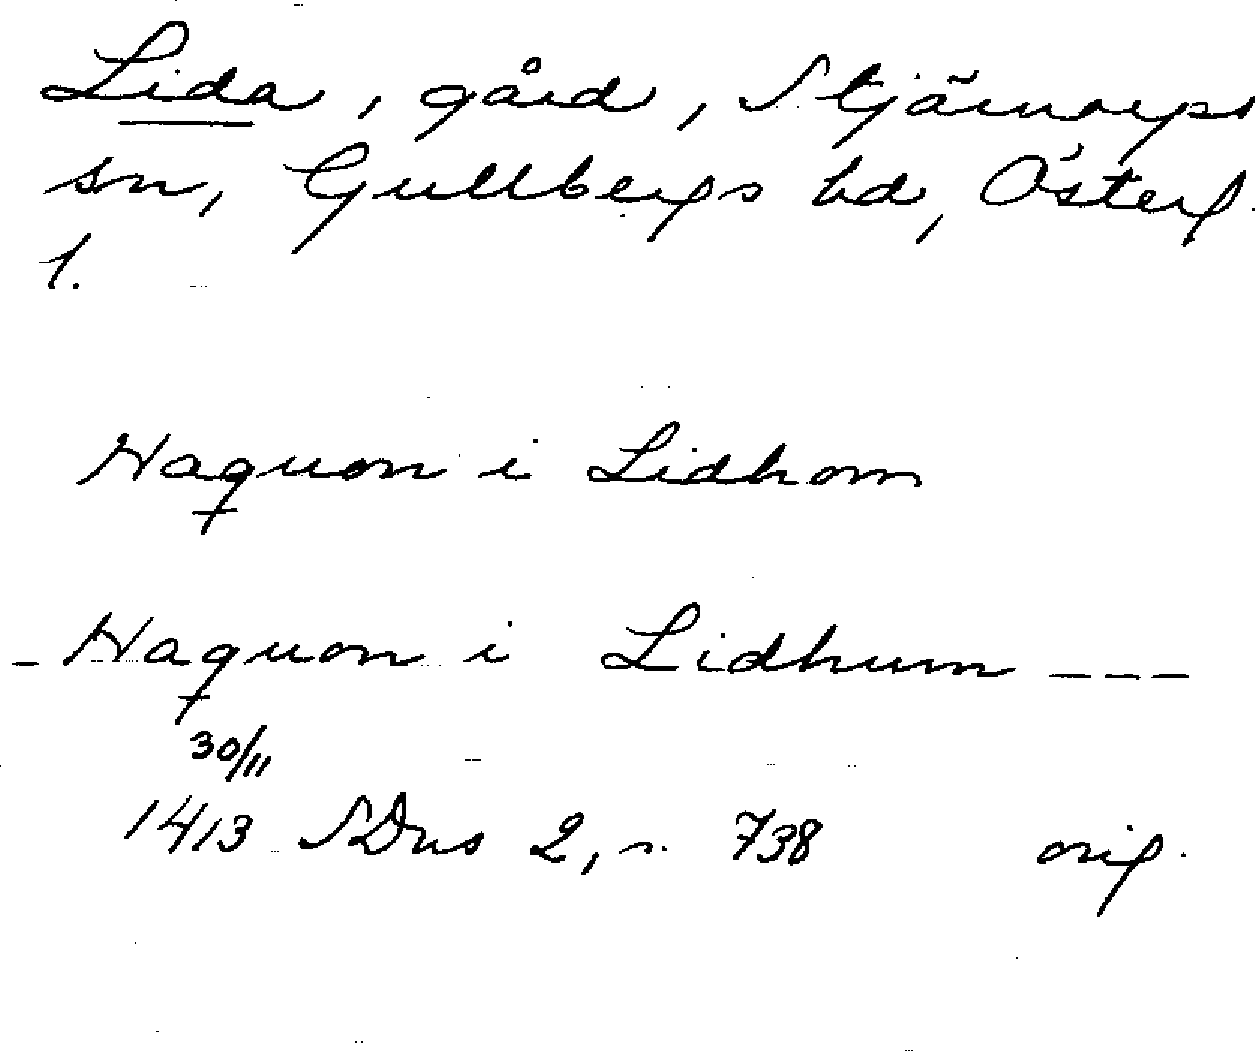 Lida, gård, Stjärnorps
sn, Gullbergs hd, Österg.
1.
Haquon i Lidhom
- Haquon i Lidhum ---
30/11
1413 SDns 2, s. 738 orig.